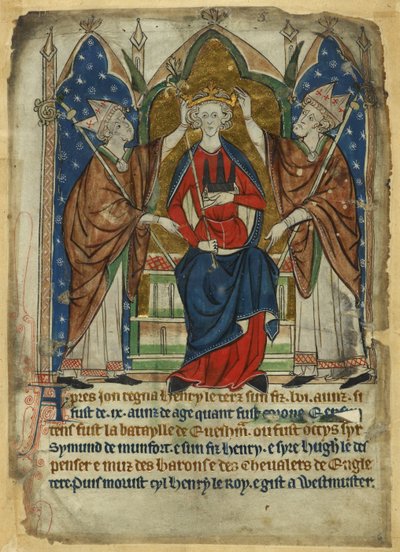 Apres Jon regna Henry le terz sun fiz .lvi. aunz. si
fust de .ix. aunz de age quant fust
tens fust la bataylle de Euesham. ou fust occys syr
Symund de munfort. e sun fiz Henry. e syre Hugh le des
penser e muz des barons e des cheualers de Engle
tere. Puis moust cyl Henry le Roy. e gist a Westmuster.